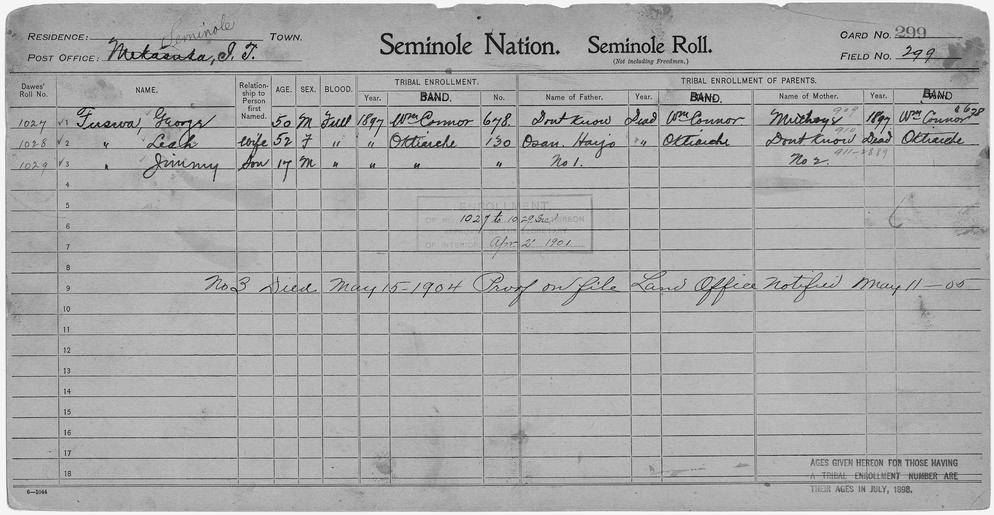 Seminole
RESIDENCE: TOWN.
POST OFFICE: Mekasuka, I. T.
Seminole Nation. Seminole Roll.
(Not including Freedmen.)
CARD NO. 299
FIELD NO. 299
Dawes' Roll No. NAME. Relationship to Person first Named. AGE. SEX. BLOOD. TRIBAL ENROLLMENT. TRIBAL ENROLLMENT OF PARENTS.
Year. BAND. No. Name of Father. Year. BAND. Name of Mother. Year. BAND
1027 1 Fuswa, George 50 M Full 1897 Wm Connor 678 Dont know Dead Wm Connor 909 1897 Wm Connor 678
1028 2 " Leah wife 52 F " " Oktiarche 130 Osan Harjo " Oktiarche Dont know 910 Dead Oktiarche
1029 3 " Jimmy Son 17 M " " " " No 1. No 2.
4
5
6
7
8
ENROLLMENT
OF HEREON
1027 to 1029 Incl
SECRETARY
OF INTERIOR Apr 2 1901
9 No 3 Died May 15-1904 Proof on file Land Office Notified May 11-05
10
11
12
13
14
15
16
17
18
AGES GIVEN HEREON FOR THOSE HAVING
A TRIBAL ENROLLMENT NUMBER ARE
THEIR AGES IN JULY, 1898.
6—1044